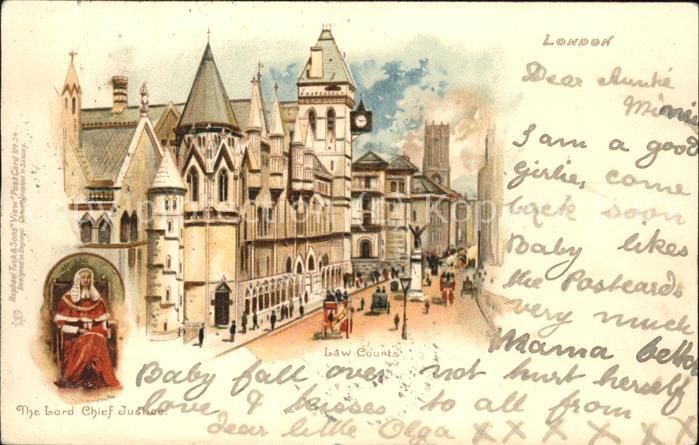 LONDON
Dear Auntie
Minnie
I am a good
girlie, come
back soon
Baby likes
the Postcards
very much
Mama better
Baby fall over not hurt herself
love & kisses to all from
dear little Olga X X X X X X
Law Courts
The Lord Chief Justice.
Raphael Tuck & Sons' "View" Post Card No 24
Designed in England. Chromographed in Saxony.